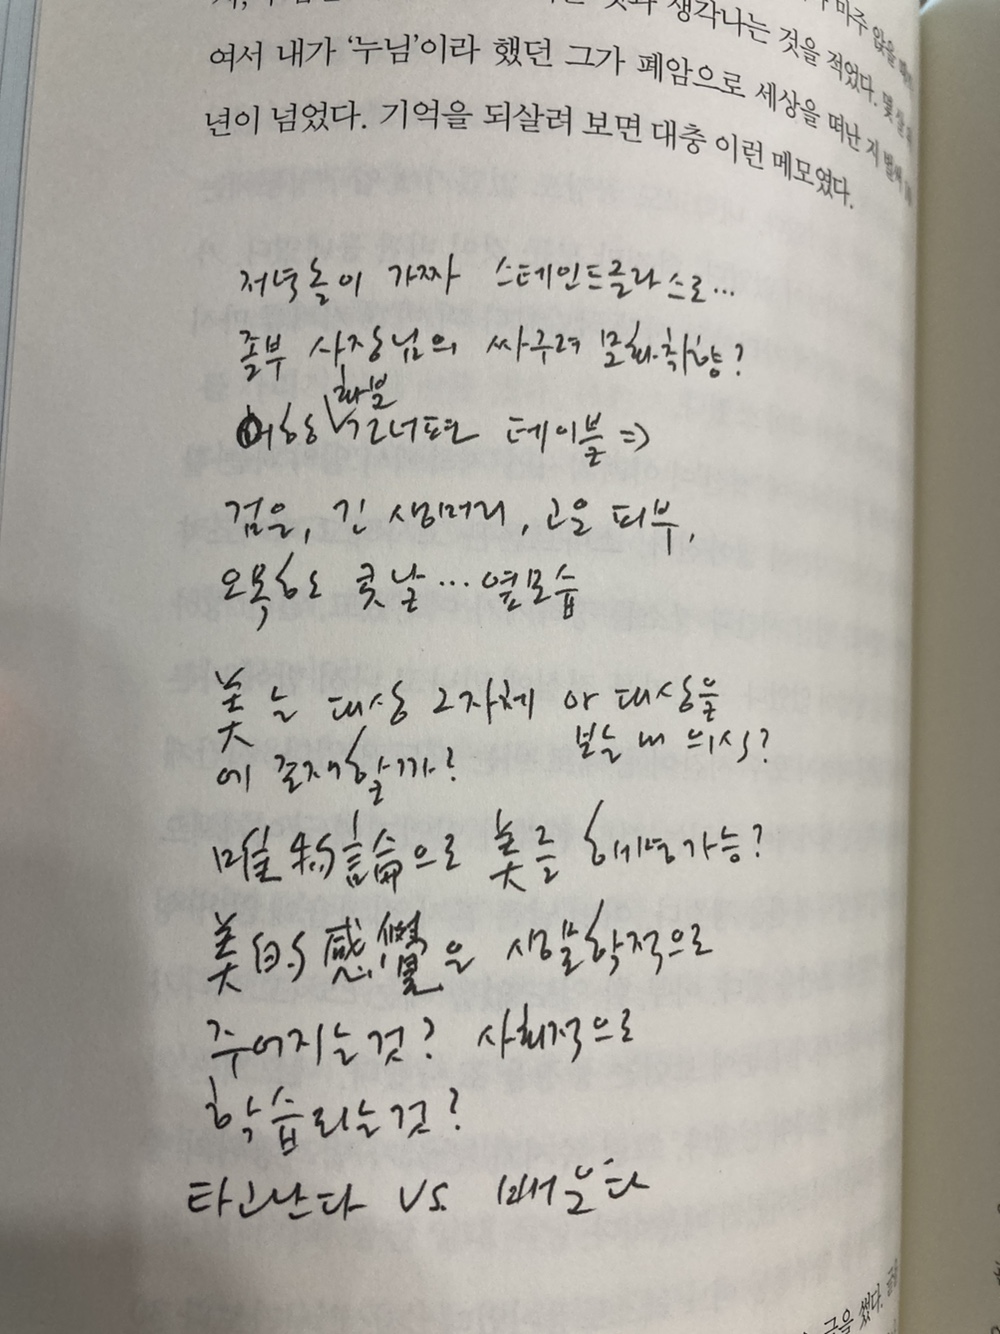 생각나는 것을 적었다. 몇
여서 내가 ‘누님’이라 했던 그가 폐암으로 세상을 떠난 지 벌써
년이 넘었다. 기억을 되살려 보면 대충 이런 메모였다.
저녁놀이 가짜 스테인드글라스로...
졸부 사장님의 싸구려 문화취향?
화분
건너편 테이블 ⇒
검은, 긴 생머리, 고운 피부,
오똑한 콧날... 옆모습
美는 대상 그 자체 아 대상을
보는 내 의식?
에 존재할까?
唯物論으로 美를 해명가능?
美的 感覺은 생물학적으로
주어지는 것? 사회적으로
학습되는 것?
타고난다 vs. 배운다
글을 썼다.